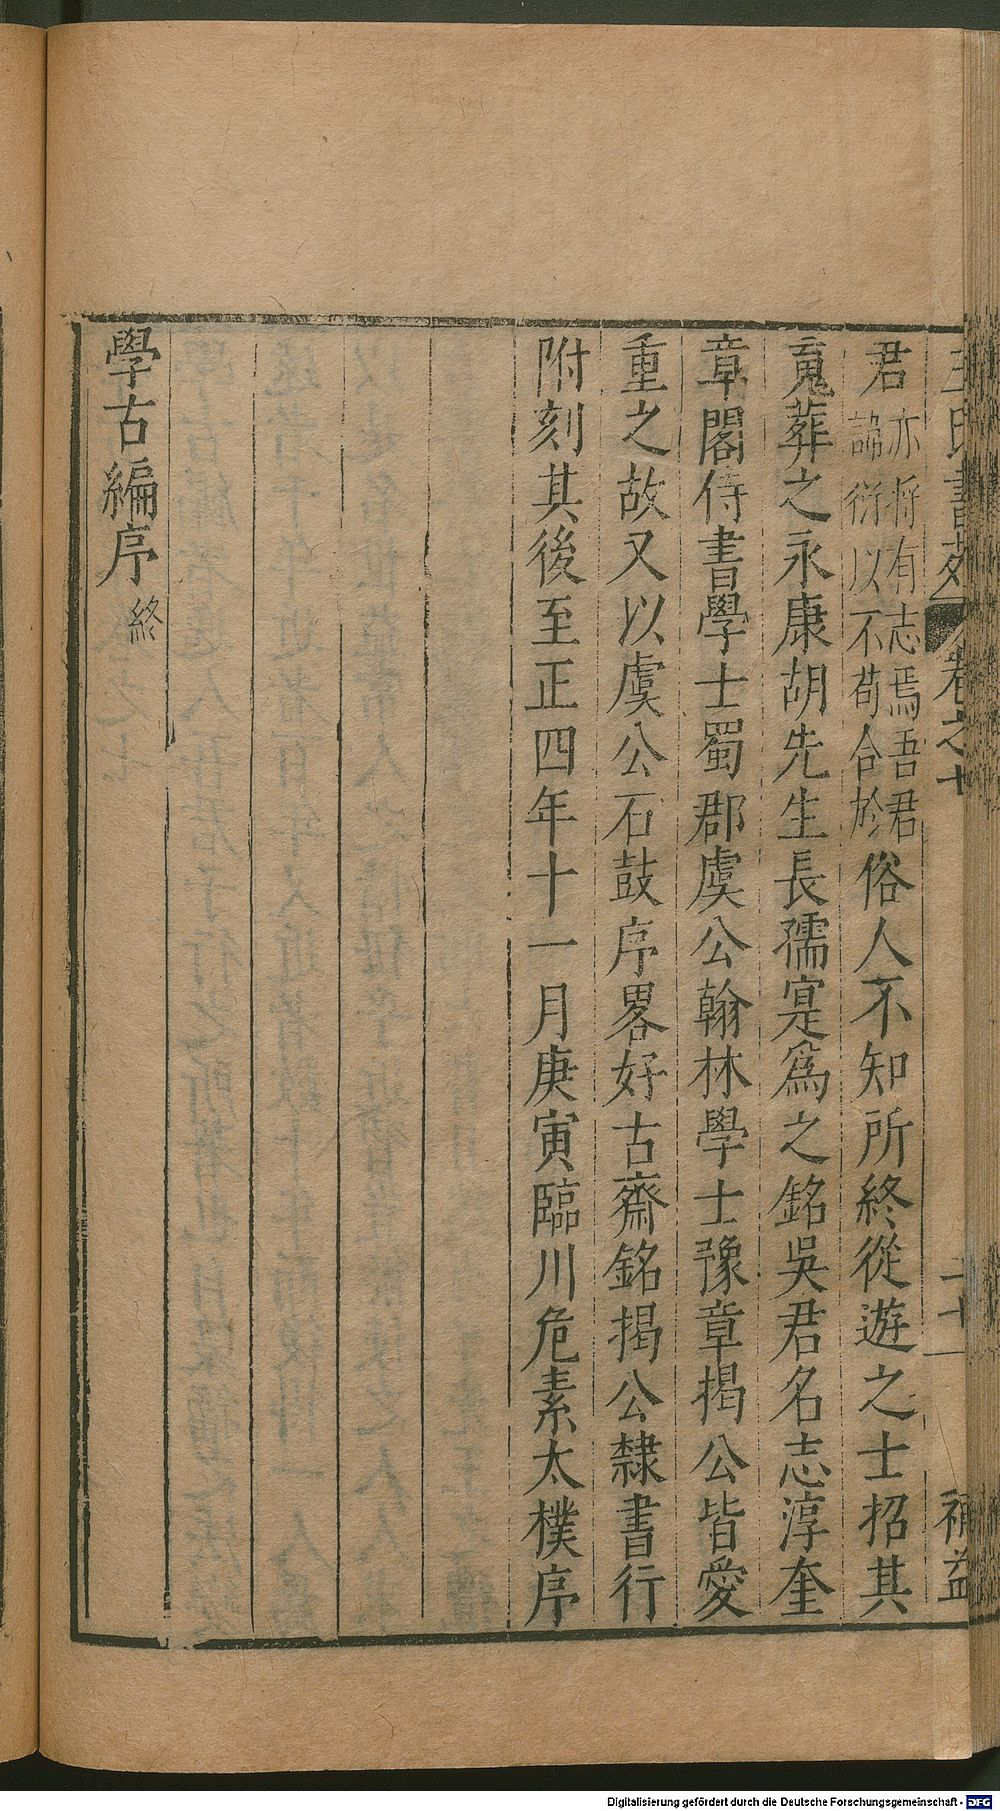 王氏書苑 卷之七 二十一 補益
君亦將有志焉吾君諦衍以不苟合於俗人不知所終從遊之士招其
䰟葬之永康胡先生長孺寔爲之銘吳君名志淳奎
章閣侍書學士蜀郡虞公翰林學士豫章揭公皆愛
重之故又以虞公石鼓序畧好古齋銘揭公隸書行
附刻其後至正四年十一月庚寅臨川危素太樸序
學古編序終
Digitalisierung gefördert durch die Deutsche Forschungsgemeinschaft - DFG